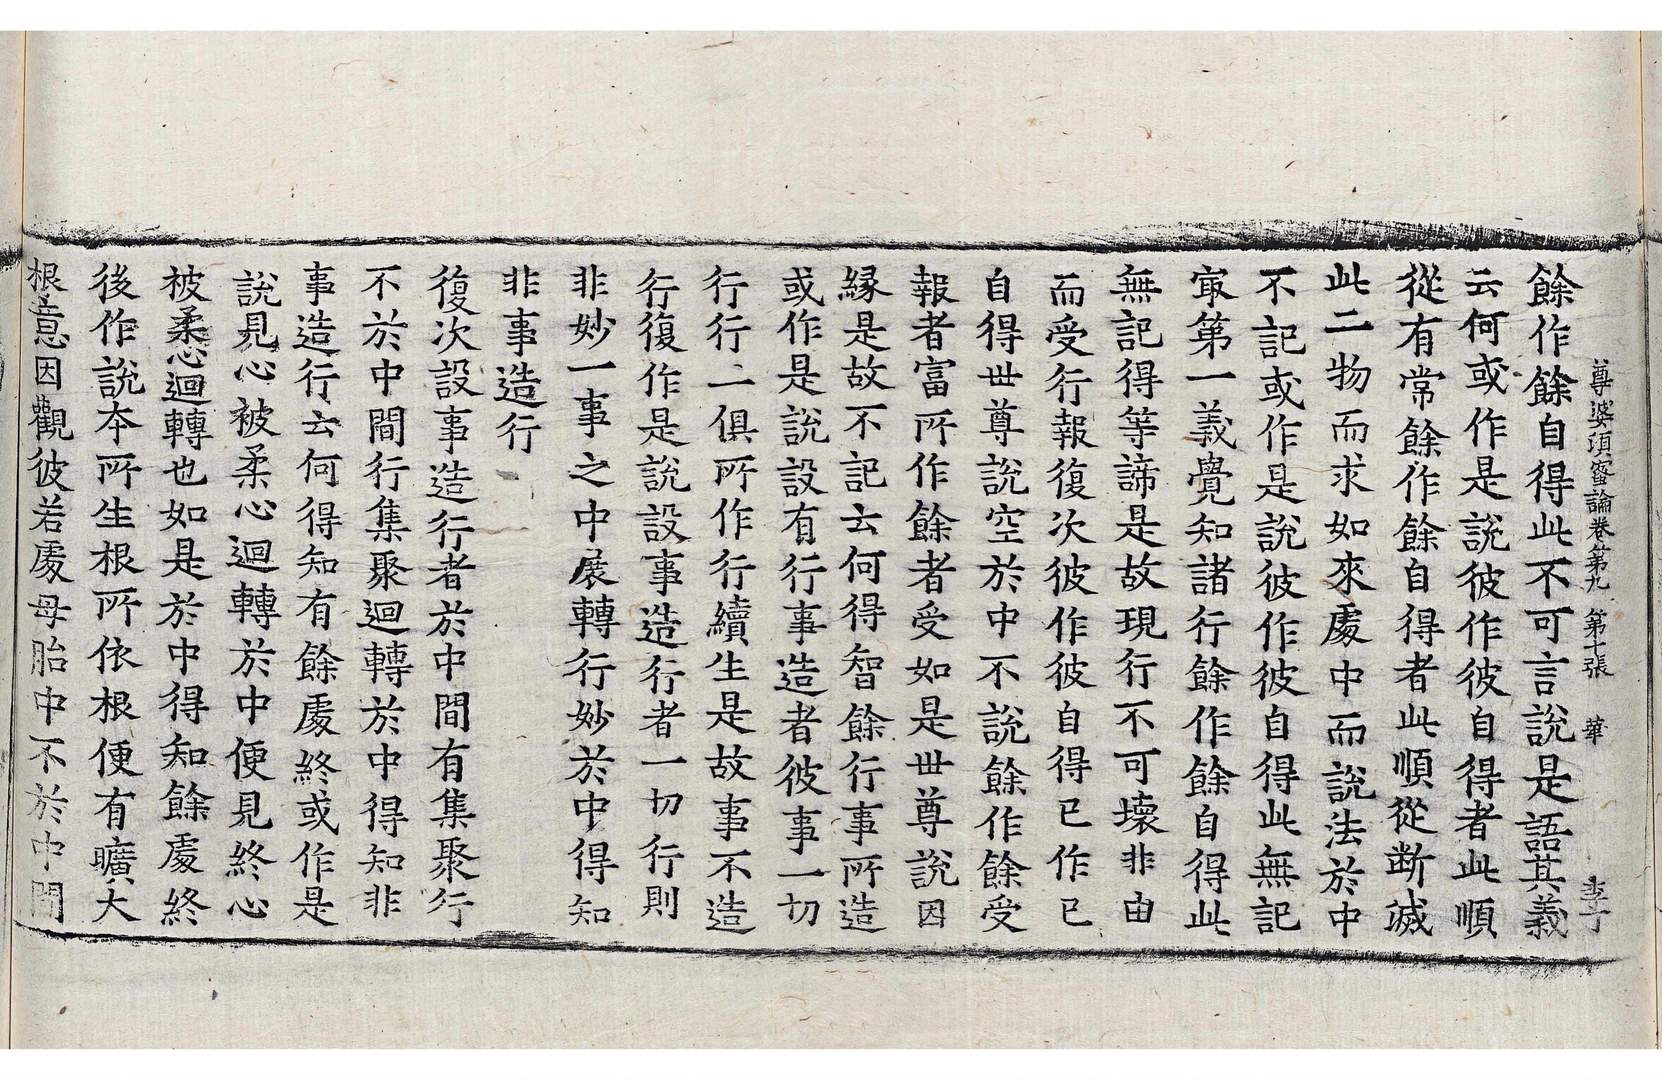 尊婆須蜜論卷第九 第十張 華 李丁
餘作餘自得此不可言說是語其義
云何或作是說彼作彼自得者此順
從有常餘作餘自得者此順從断滅
此二物而求如來處中而說法於中
不記或作是說彼作彼自得此無記
㝡第一義覺知諸行餘作餘自得此
無記得等諦是故現行不可壞非由
而受行報復次彼作彼自得已作已
自得世尊說空於中不說餘作餘受
報者富所作餘者受如是世尊說因
緣是故不記云何得智餘行事所造
或作是說設有行事造者彼事一切
行行二俱所作行續生是故事不造
行復作是說設事造行者一切行則
非妙一事之中展轉行妙於中得知
非事造行
復次設事造行者於中間有集聚行
不於中間行集聚迴轉於中得知非
事造行云何得知有餘處終或作是
說見心被柔心迴轉於中便見終心
被柔心迴轉也如是於中得知餘處終
後作說本所生根所依根便有曠大
根意因觀彼若處母胎中不於中間